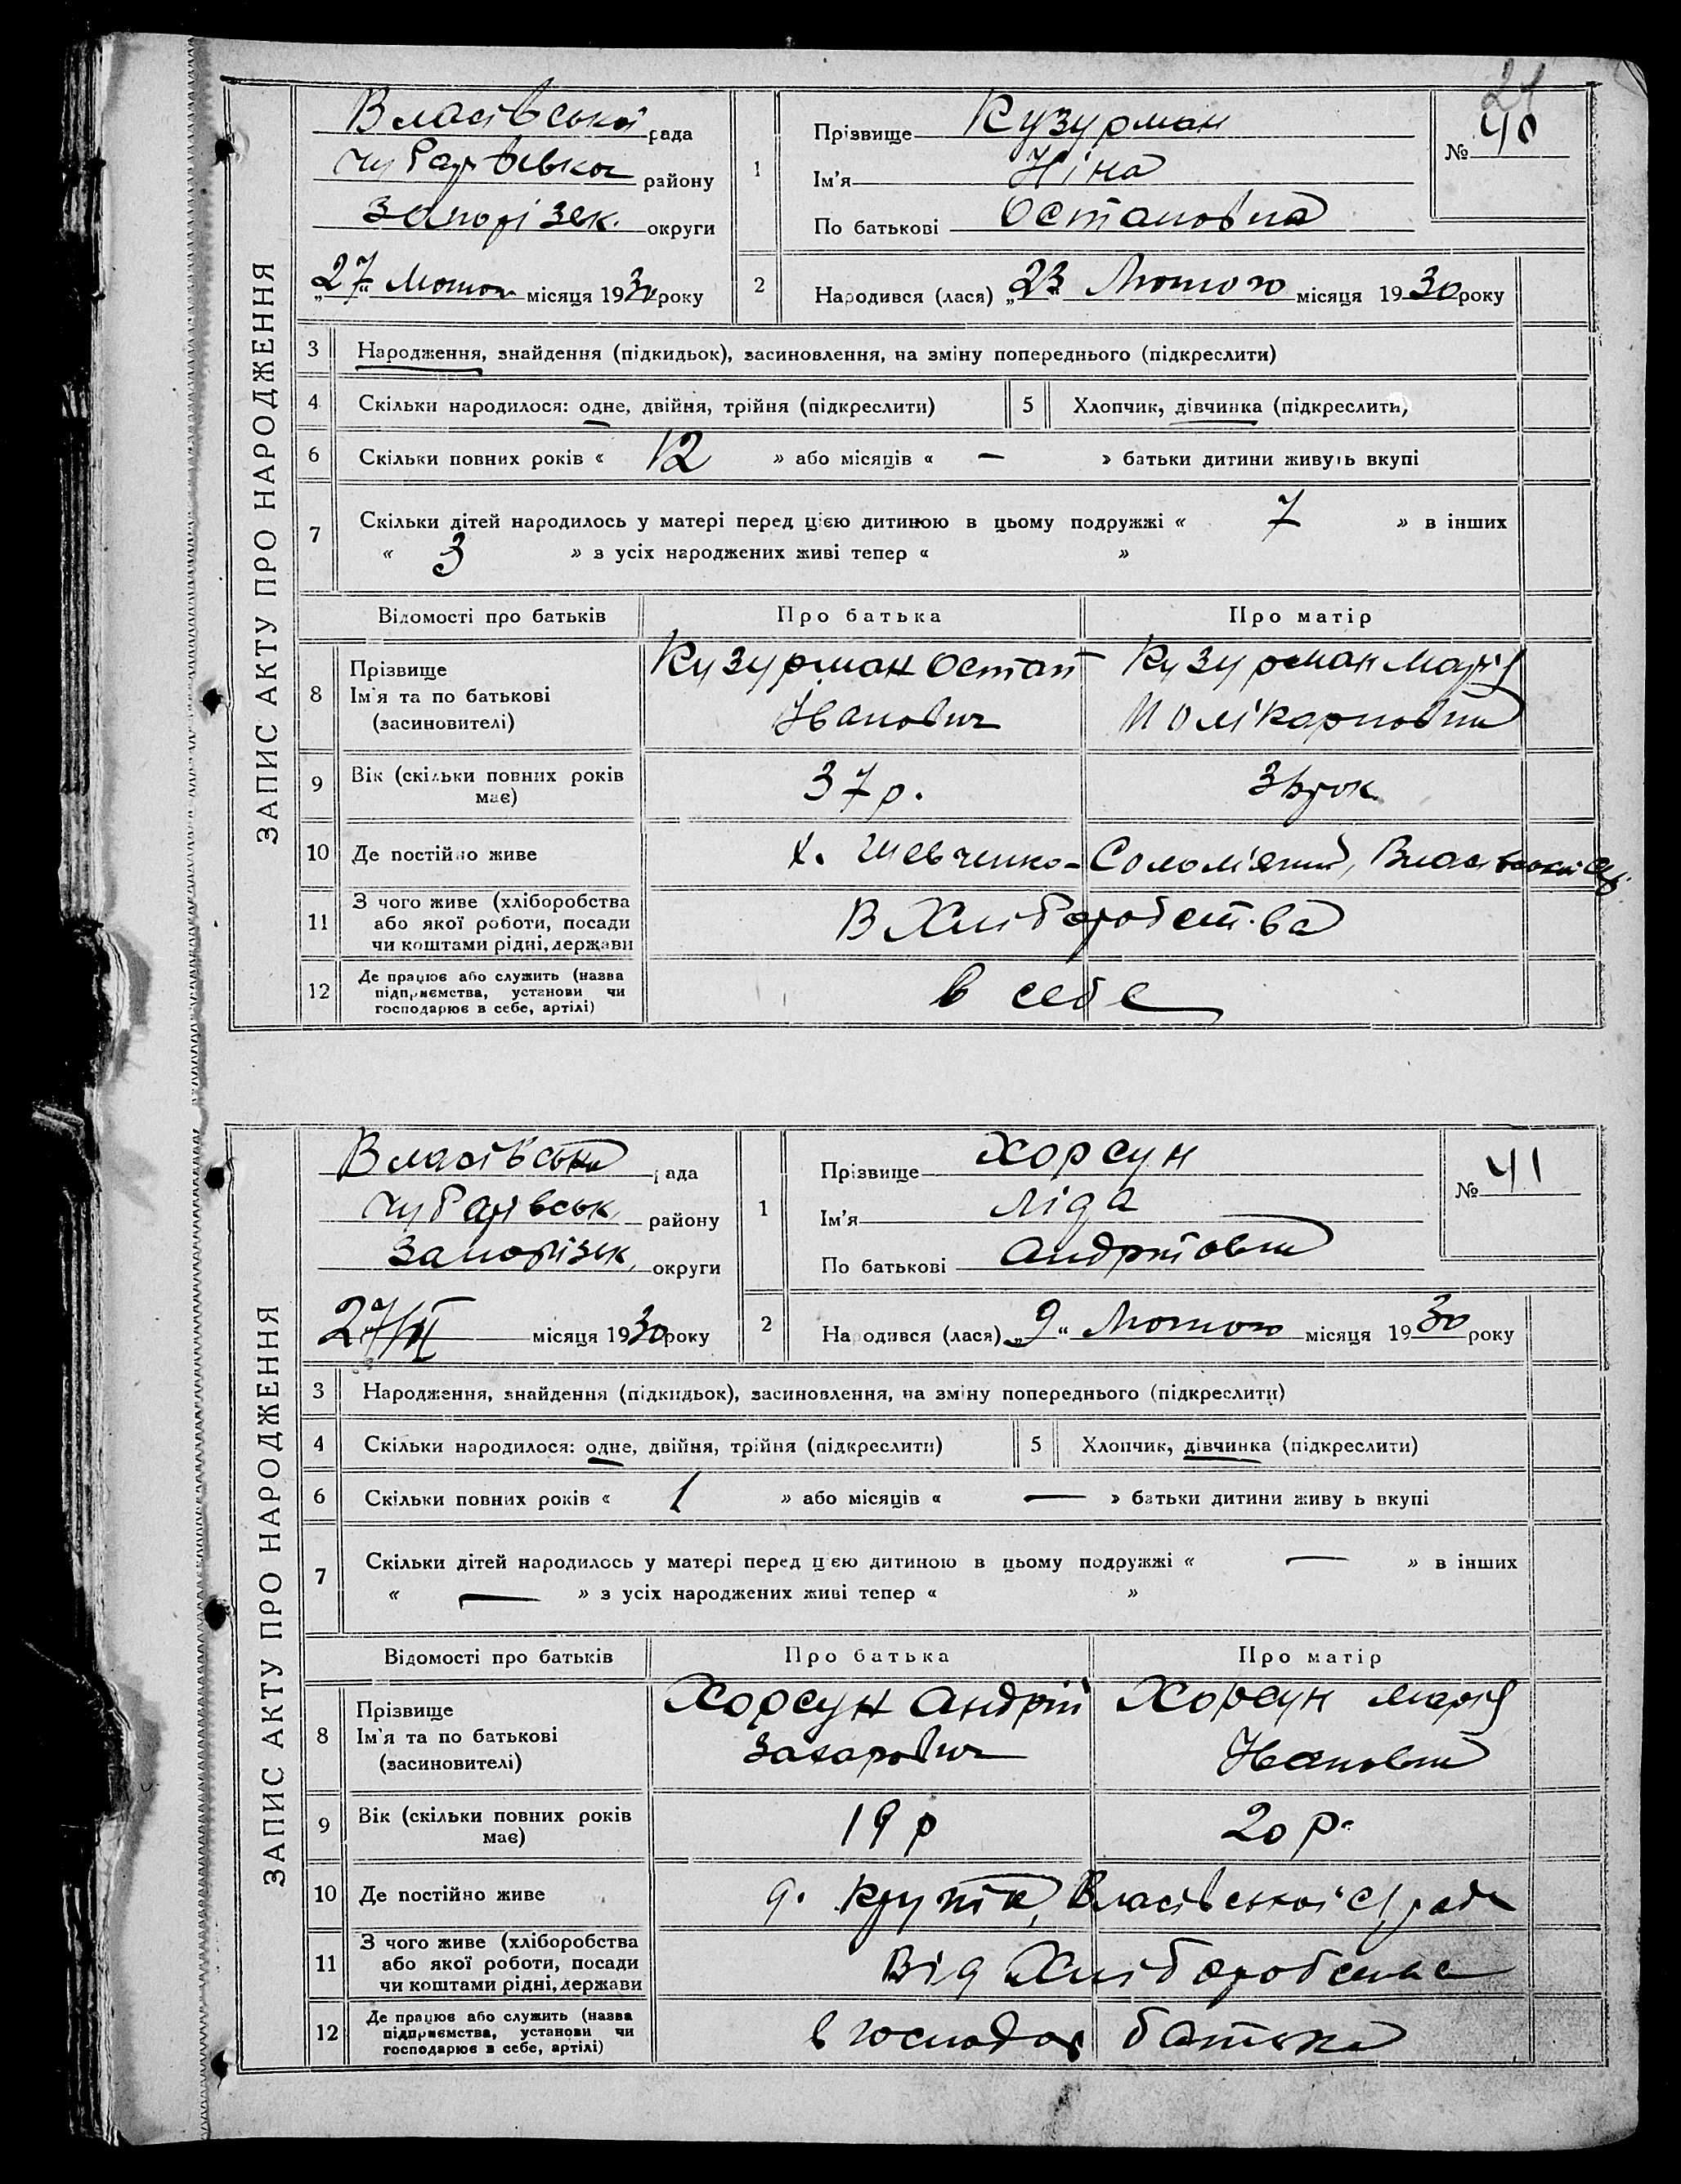 21
ЗАПИС АКТУ ПРО НАРОДЖЕННЯ
Власівська рада
Чубарівськ району
Запорізьк. округи
„27“ Лютого місяця 1930 року
1
Прізвище Кузурман
Ім'я Ніна
По батькові Остаповна
№ 40
2
Народився (лася) „23“ Лютого місяця 1930 року
3 Народження, знайдення (підкидьок), засиновлення, на зміну попереднього (підкреслити)
4 Скільки народилося: одне, двійня, трійня (підкреслити) 5 Хлопчик, дівчинка (підкреслити)
6 Скільки повних років « 12 » або місяців « — » батьки дитини живуть вкупі
7 Скільки дітей народилось у матері перед цією дитиною в цьому подружжі « 7 » в інших
« 3 » з усіх народжених живі тепер « »
Відомості про батьків Про батька Про матір
8 Прізвище Ім'я та по батькові (засиновителі)
Кузурман Остап Іванович
Кузурман Марія Полікарповна
9 Вік (скільки повних років має) 37 р. рок
10 Де постійно живе х. Шевченко-Солом'яний, Власівської с/р.
11 З чого живе (хліборобства або якої роботи, посади чи коштами рідні, держави В Хліборобства
12 Де працює або служить (назва підприємства, установи чи господарює в себе, артілі) в себе
ЗАПИС АКТУ ПРО НАРОДЖЕННЯ
Власівська рада
Чубарівськ району
Запорізьк. округи
27/II місяця 1930 року
1
Прізвище Хорсун
Ім'я Ліда
По батькові Андріївна
№ 41
2
Народився (лася) „9“ Лютого місяця 1930 року
3 Народження, знайдення (підкидьок), засиновлення, на зміну попереднього (підкреслити)
4 Скільки народилося: одне, двійня, трійня (підкреслити) 5 Хлопчик, дівчинка (підкреслити)
6 Скільки повних років « 1 » або місяців « — » батьки дитини живу ь вкупі
7 Скільки дітей народилось у матері перед цією дитиною в цьому подружжі « — » в інших
« — » з усіх народжених живі тепер « »
Відомості про батьків Про батька Про матір
8 Прізвище Ім'я та по батькові (засиновителі)
Хорсун Андрій Захарович
Хорсун Марія Івановна
9 Вік (скільки повних років має) 19 р 20 р.
10 Де постійно живе Власівської с/ради
11 З чого живе (хліборобства або якої роботи, посади чи коштами рідні, держави Від Хліборобства
12 Де працює або служить (назва підприємства, установи чи господарює в себе, артілі) в господар батька